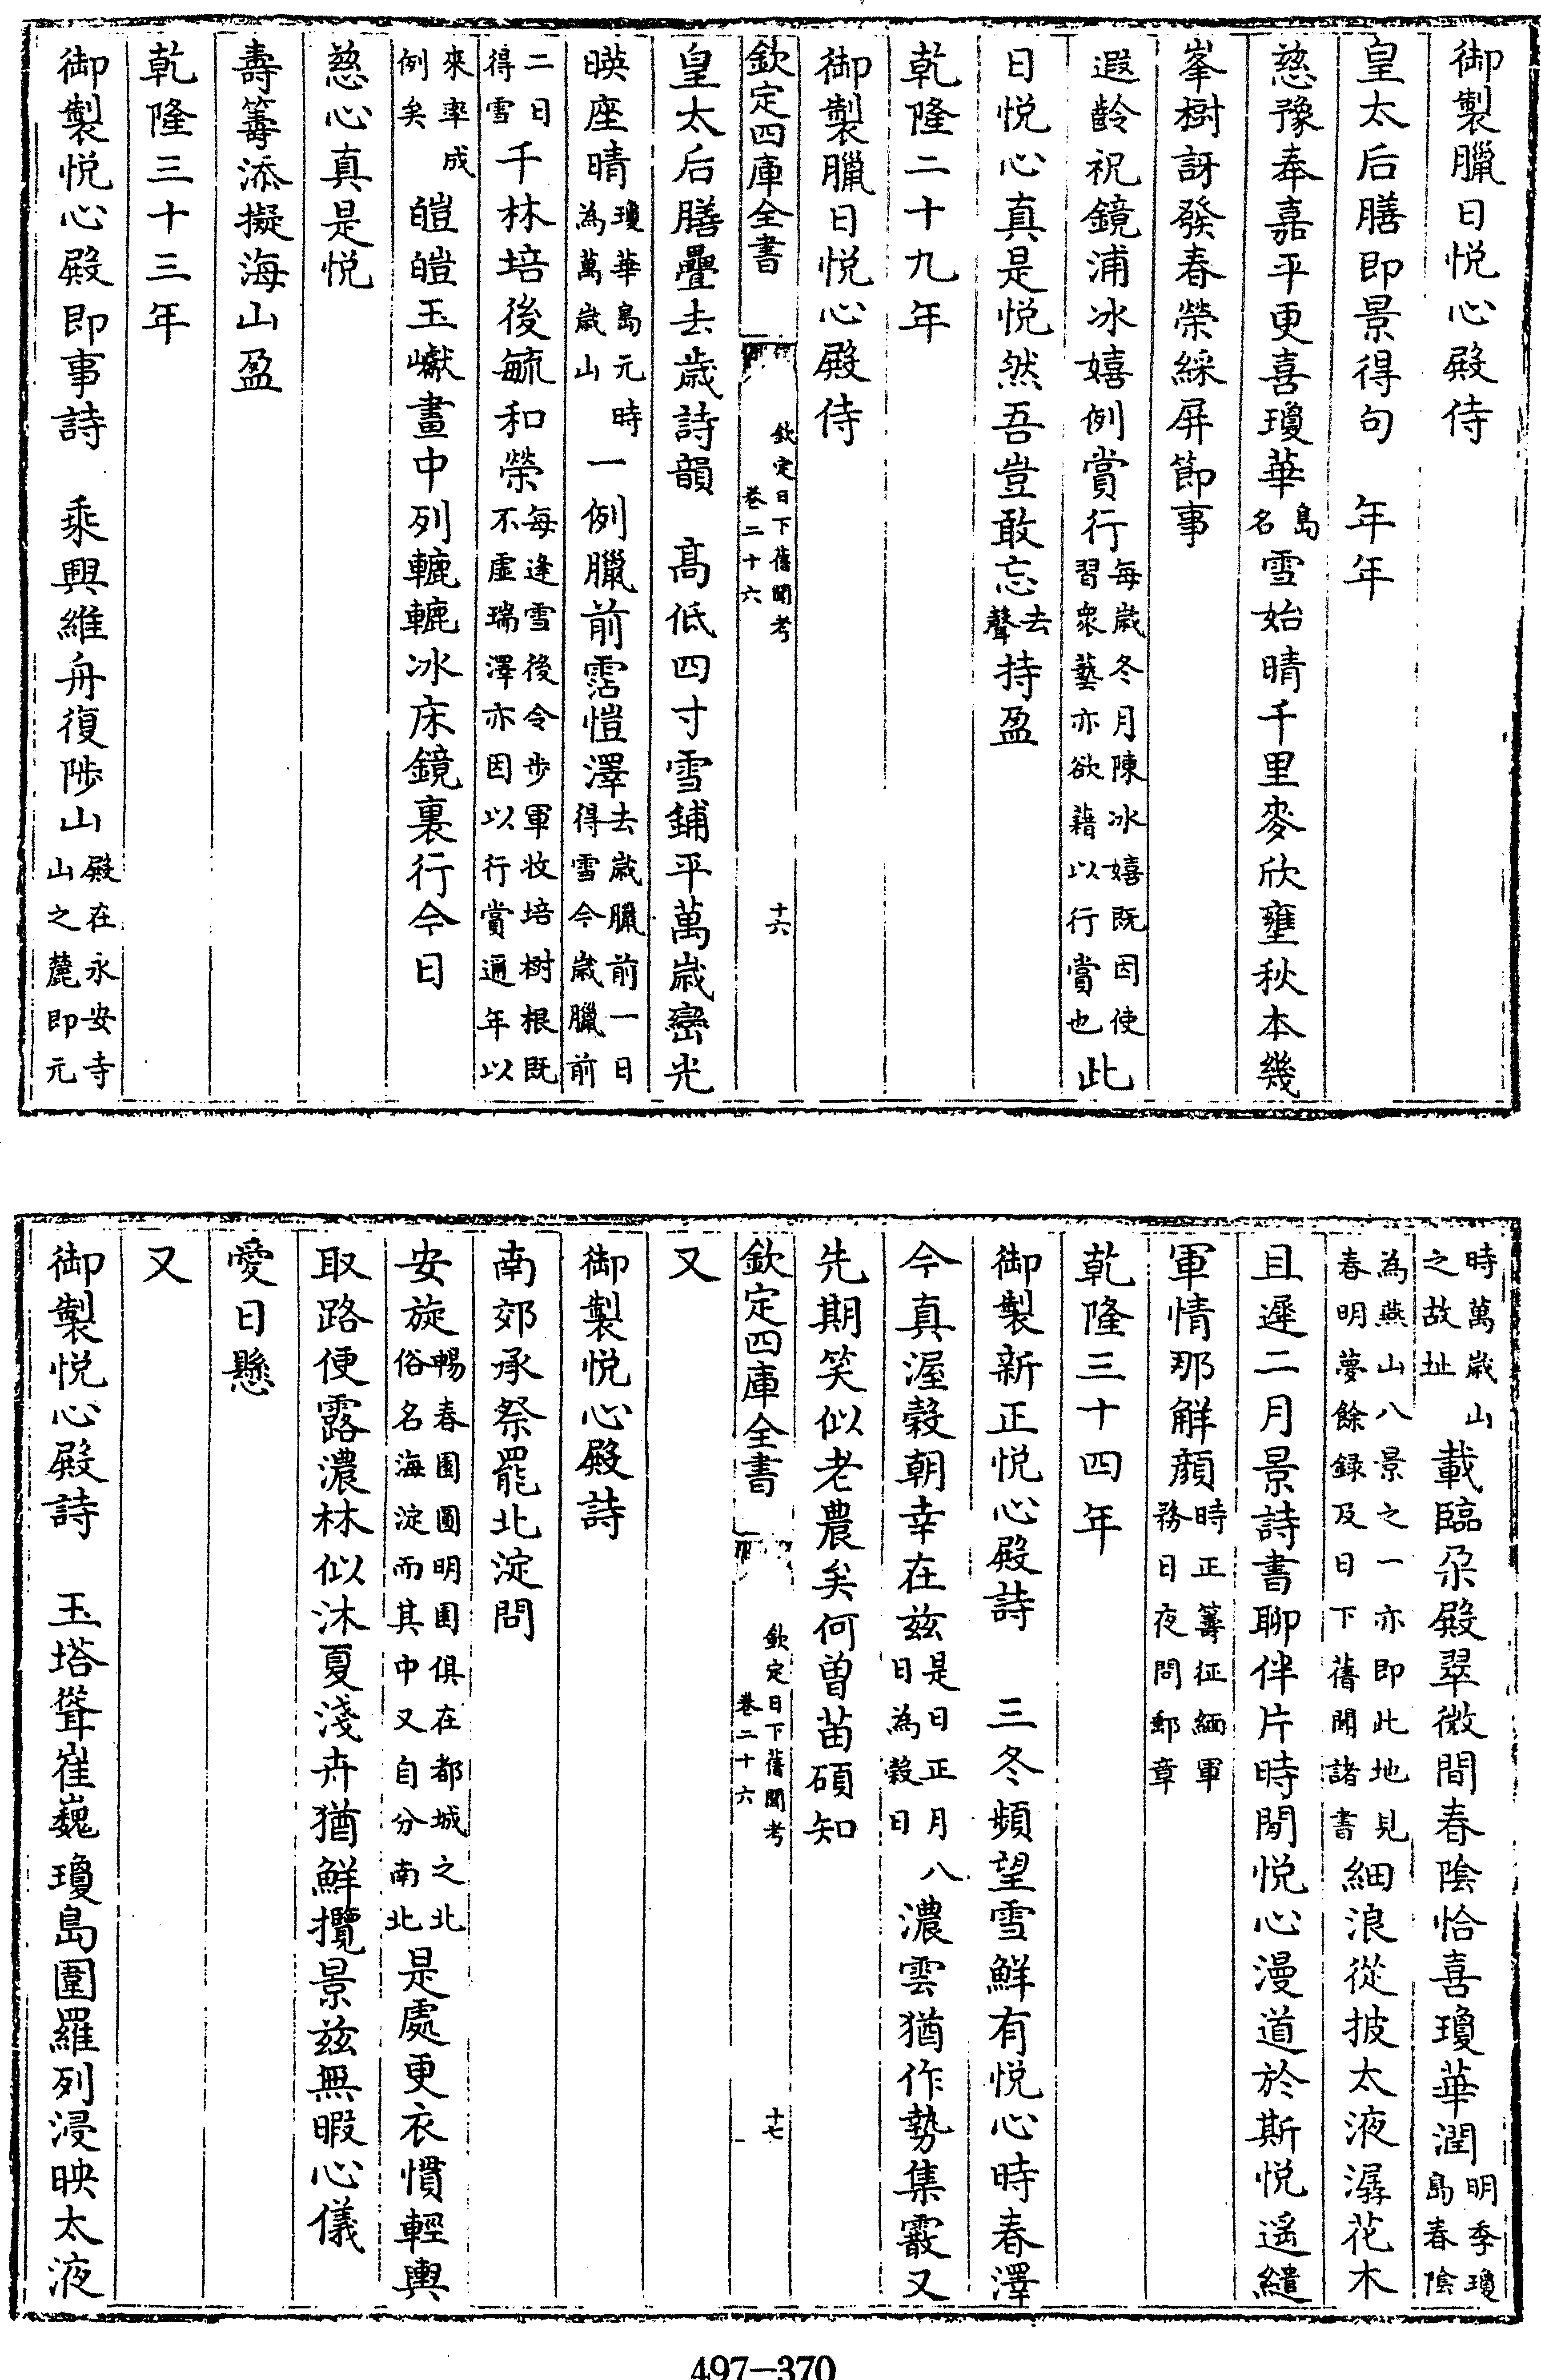 御製臘日悦心殿侍
皇太后膳即景得句　年年
慈豫奉嘉平更喜瓊華島名雪始晴千里麥欣壅秋本幾
峯樹訝發春榮綵屏節事
遐齡祝鏡浦冰嬉例賞行每歲冬月陳冰嬉既因使習衆藝亦欲藉以行賞也此
日悦心真是悦然吾豈敢忘去聲持盈
乾隆二十九年
御製臘日悦心殿侍
欽定四庫全書　欽定日下舊聞考卷二十六　十六
皇太后膳疊去歲詩韻　高低四寸雪鋪平萬歲巒光
暎座晴瓊華島元時為萬歲山一例臘前霑愷澤去歲臘前一日得雪今歲臘前
二日得雪千林培後毓和榮每逢雪後令步軍收培樹根既不虚瑞澤亦因以行賞邇年以
來率成例矣皚皚玉巘畫中列轆轆冰床鏡裏行今日
慈心真是悦
壽籌添擬海山盈
乾隆三十三年
御製悦心殿即事詩　乘興維舟復陟山殿在永安寺山之麓即元
時萬歲山之故址載臨朶殿翠微間春陰恰喜瓊華潤明季瓊島春陰
為燕山八景之一亦即此地見春明夢餘録及日下舊聞諸書細浪從披太液潺花木
且遲二月景詩書聊伴片時閒悦心漫道於斯悦遥繾
軍情那解顔時正籌征緬軍務日夜問郵章
乾隆三十四年
御製新正悦心殿詩　三冬頻望雪鮮有悦心時春澤
今真渥穀朝幸在兹是日正月八日為穀日濃雲猶作勢集霰又
先期笑似老農矣何曽苗碩知
欽定四庫全書　欽定日下舊聞考卷二十六　十七
又
御製悦心殿詩
南郊承祭罷北淀問
安旋暢春園圓明園俱在都城之北俗名海淀而其中又自分南北是處更衣慣輕輿
取路便露濃林似沐夏淺卉猶鮮攬景兹無暇心儀
愛日懸
又
御製悦心殿詩　玉塔聳崔巍瓊島圍羅列浸映太液
497—370